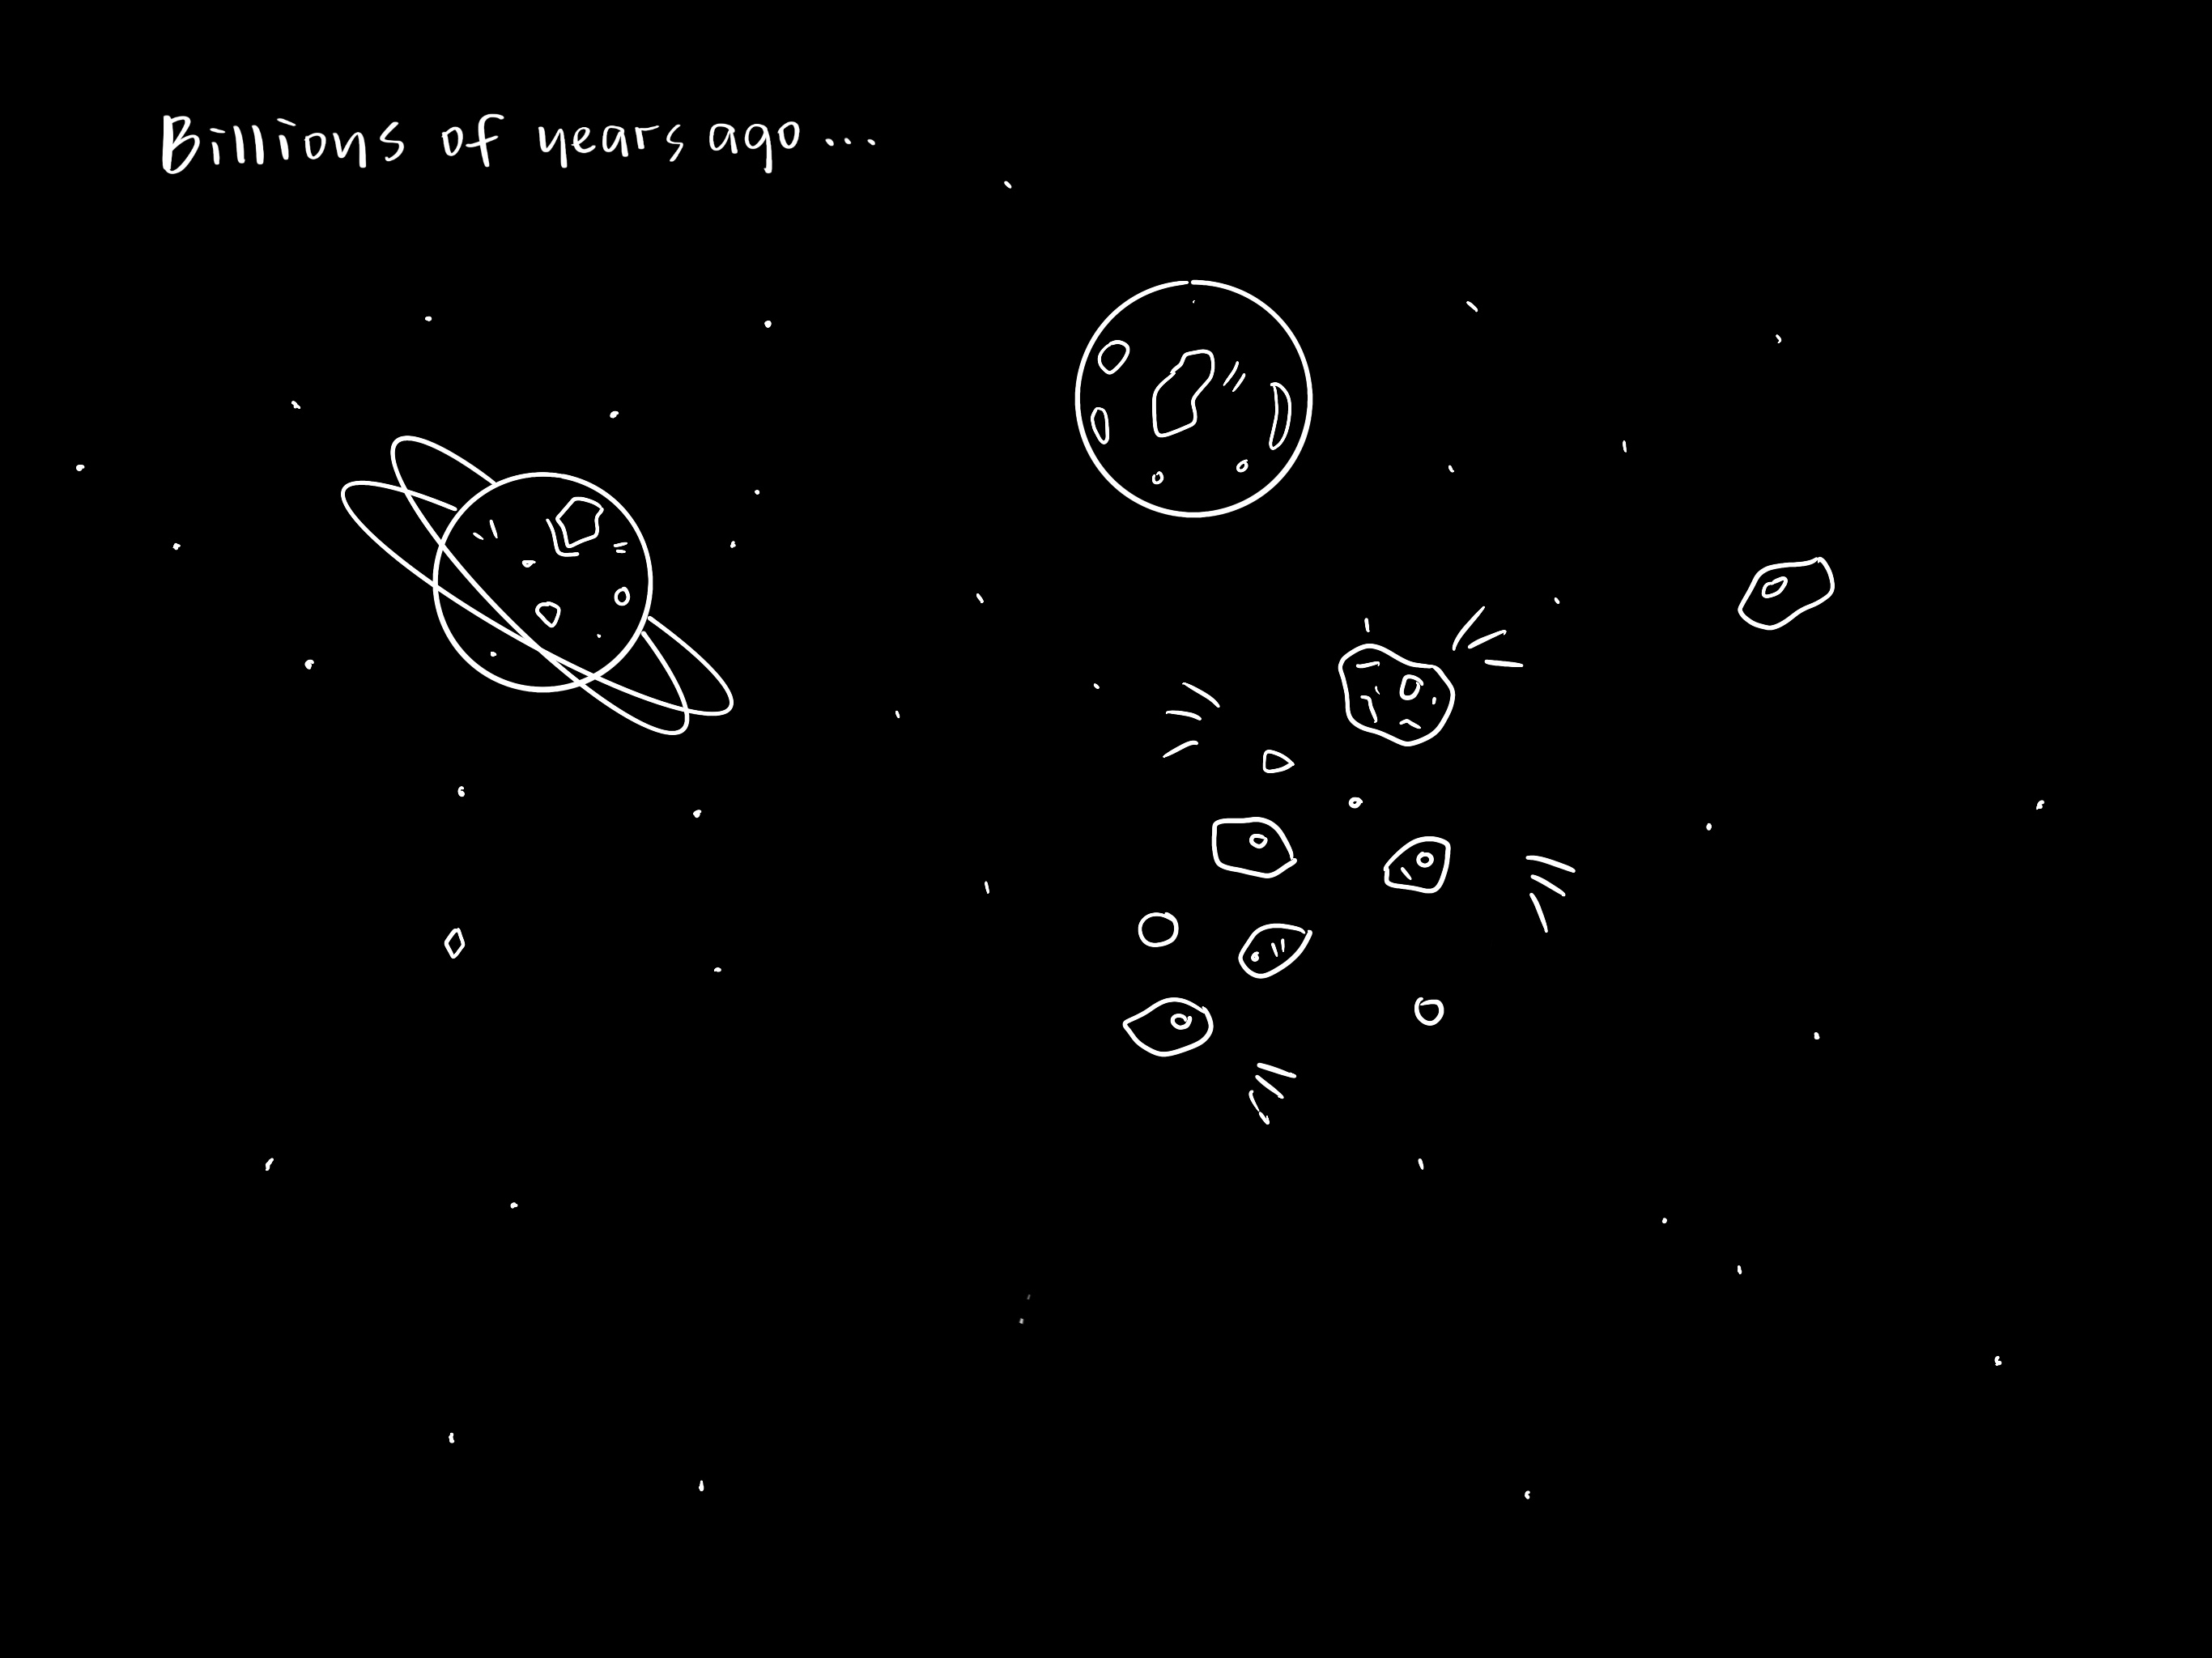 Billions of years ago...